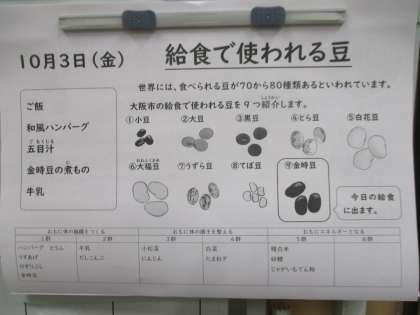 10月3日（金）
給食で使われる豆
世界には、食べられる豆が70から80種類あるといわれています。
大阪市の給食で使われる豆を9つ紹介します。
しょうかい
ご飯
和風ハンバーグ
ごもくじる
五目汁
金時豆の煮もの
牛乳
①小豆
②大豆
③黒豆
④とら豆
⑤白花豆
⑥大福豆
⑦うずら豆
⑧てぼ豆
⑨金時豆
今日の給食
に出ます。
おもに体の組織をつくる
おもに体の調子を整える
おもにエネルギーとなる
1群
2群
3群
4群
5群
6群
ハンバーグ とうふ
牛乳
小松菜
白菜
精白米
うすあげ
だしこんぶ
にんじん
たまねぎ
砂糖
けずりぶし
じゃがいもでん粉
金時豆